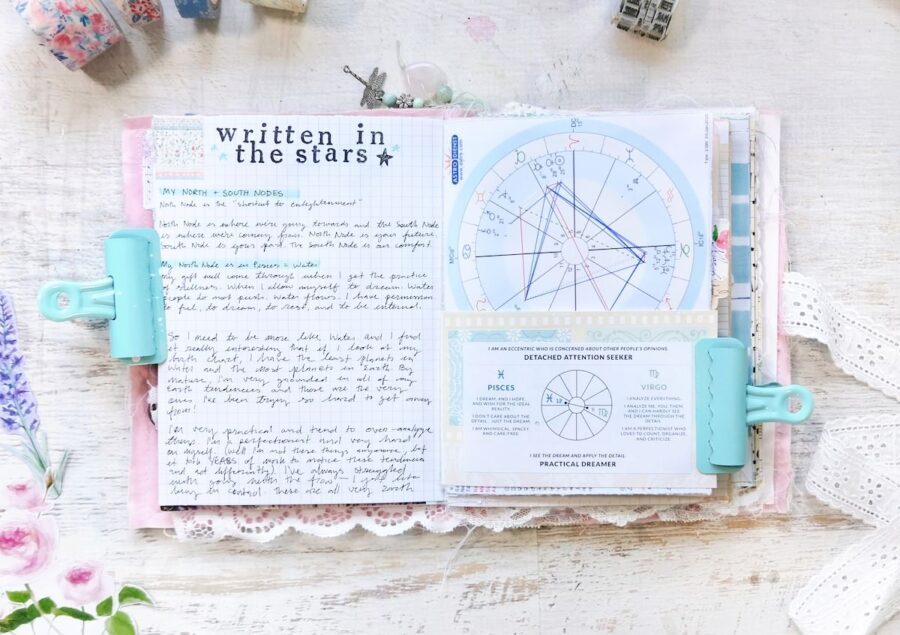 written in
the stars
MY NORTH + SOUTH NODES
North Node is the "shortcut to enlightenment"
North Node is where we're going towards and the South Node
is where we're coming from. North Node is your future,
South Node is your past. The South Node is our comfort.
My North Node is in Pisces = Water
My gift will come through when I get the practice
of stillness. When I allow myself to dream. Water
people do not push. Water flows. I have permission
to feel, to dream, to rest, and to be internal.
So I need to be more like Water and I find
it really interesting that if I look at my
birth chart, I have the least planets in
Water and the most planets in Earth. By
nature, I'm very grounded in all of my
Earth tendencies and those are the very
ones I've been trying so hard to get away
from!
I'm very practical and tend to over-analyze
things. I'm a perfectionist and very hard
on myself. (Well I'm not these things anymore, but
it took YEARS of work to notice these tendencies
and act differently). I've always struggled
with going with the flow - I just like
being in control. These are all very Earth
ASTRO DIENST
www.astro.com
I AM AN ECCENTRIC WHO IS CONCERNED ABOUT OTHER PEOPLE'S OPINIONS.
DETACHED ATTENTION SEEKER
PISCES
I DREAM, AND I HOPE,
AND WISH FOR THE IDEAL
REALITY.
I DON'T CARE ABOUT THE
DETAIL - JUST THE DREAM
I AM WHIMSICAL, SPACEY
AND CARE-FREE.
VIRGO
I ANALYZE EVERYTHING.
I ANALYZE ME, YOU, THEM,
AND I CAN HARDLY SEE
THE DREAM THROUGH THE
DETAIL.
I AM A PERFECTIONIST WHO
LOVES TO COUNT, ORGANIZE,
AND CRITICIZE.
I SEE THE DREAM AND APPLY THE DETAIL.
PRACTICAL DREAMER